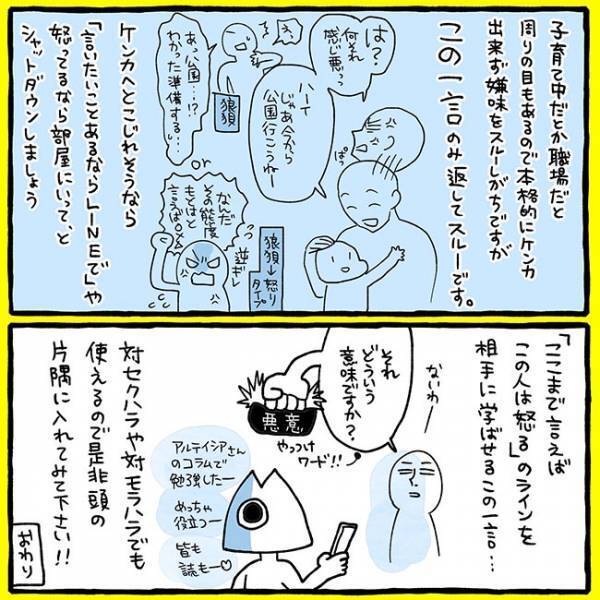 子育て中だとか職場だと
周りの目もあるので本格的にケンカ
出来ず嫌味をスルーしがちですが
この一言のみ返してスルーです。
は?
何それ
感じ悪っっ
ぱっ
ハーイ
じゃあ今から
公園行こうねー
え。
あっ公園…!?
わかった準備する…
狼狽
or
なんだ
その態度
もとはと
言えば○×△
逆ギレ
狼狽→怒り
タイプ
ケンカへとこじれそうなら
「言いたいことあるならLINEで」や
怒ってるなら部屋にいって、と
シャットダウンしましょう
「ここまで言えば
この人は怒る」のラインを
相手に学ばせるこの一言…
ないわー
それ
どういう
意味ですか?
悪意
やっつけ
ワード!!
アルテイシアさん
のコラムで
勉強したー
めっちゃ
役立つー
皆も
読もー♡
対セクハラや対モラハラでも
使えるので是非頭の
片隅に入れてみて下さい!!
おわり